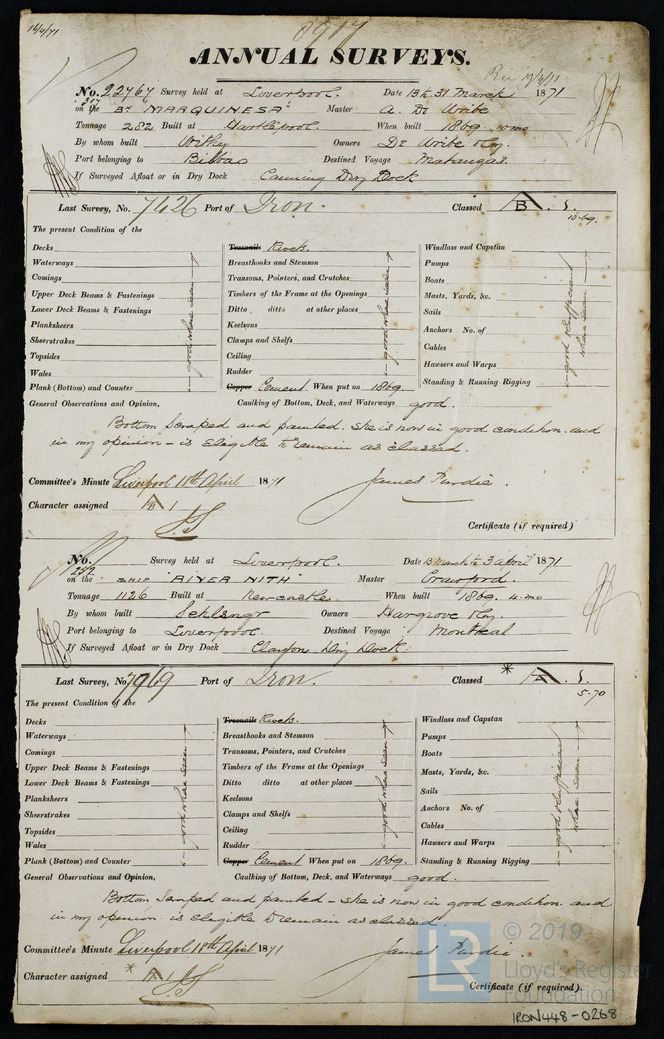 18/4/71
8917
ANNUAL SURVEYS.
Rec 19/4/71
No. 22767 Survey held at Liverpool. Date 13 to 31 March 1871
on the Bk "MARQUINESA" Master A. De Uribe
Tonnage 282 Built at Hartlepool. When built 1869
By whom built Withy Owners De Uribe & Coy.
Port belonging to Bilbao Destined Voyage Matanzas.
If Surveyed Afloat or in Dry Dock Canning Dry Dock
Last Survey, No. 7426 Port of Iron. Classed A B 1.
10.69.
The present Condition of the
Decks Treenails Rivets. Windlass and Capstan
Waterways Breasthooks and Stemson Pumps
Comings Transoms, Pointers, and Crutches Boats
Upper Deck Beams & Fastenings Timbers of the Frame at the Openings Masts, Yards, &c.
Lower Deck Beams & Fastenings Ditto ditto at other places Sails
Planksheers Keelsons Anchors No. of
Sheerstrakes Clamps and Shelfs Cables
Topsides Ceiling Hawsers and Warps
Wales Rudder Standing & Running Rigging
Plank (Bottom) and Counter Copper Cement When put on 1869.
good where seen
good where seen
good & sufficient where seen
General Observations and Opinion, Caulking of Bottom, Deck, and Waterways good.
Bottom Scraped and painted. She is now in good condition. and
in my opinion - is eligible to remain as classed.
Committee's Minute Liverpool 11th April 1871 James Pardie.
Character assigned A B 1
Certificate (if required)
No. 252 Survey held at Liverpool. Date 13 March to 3 April 1871
on the SHIP "RIVER NITH" Master Crawford.
Tonnage 1126 Built at Newcastle. When built 1869. 4. mo
By whom built Owners Hargrove & Coy.
Port belonging to Liverpool. Destined Voyage Montreal
If Surveyed Afloat or in Dry Dock Clayton Dry Dock.
Last Survey, No. 7969 Port of Iron. Classed * A 1.
5.70
The present Condition of the
Decks Treenails Rivets. Windlass and Capstan
Waterways Breasthooks and Stemson Pumps
Comings Transoms, Pointers, and Crutches Boats
Upper Deck Beams & Fastenings Timbers of the Frame at the Openings Masts, Yards, &c.
Lower Deck Beams & Fastenings Ditto ditto at other places Sails
Planksheers Keelsons Anchors No. of
Sheerstrakes Clamps and Shelfs Cables
Topsides Ceiling Hawsers and Warps
Wales Rudder Standing & Running Rigging
Plank (Bottom) and Counter Copper Cement When put on 1869.
good where seen
good where seen
good & sufficient where seen
General Observations and Opinion, Caulking of Bottom, Deck, and Waterways good.
Bottom Scraped and painted - she is now in good condition. and
in my opinion is eligible to remain as classed.
Committee's Minute Liverpool 11th April 1871 James Pardie.
Character assigned * A 1
Certificate (if required).
© 2019
LR
Lloyd's Register
Foundation
IRON448-0268